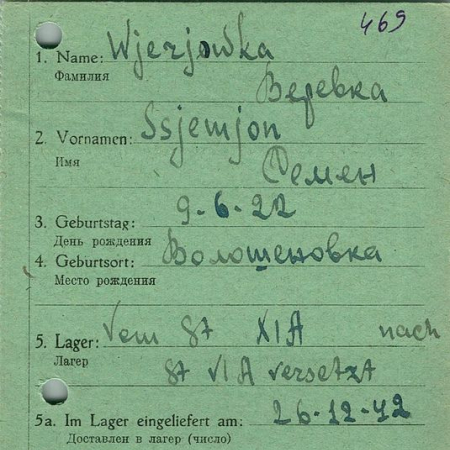 469
1. Name: Wjerjowka
Фамилия
Веревка
2. Vornamen: Ssjemjon
Имя
Семен
3. Geburtstag: 9-6-22
День рождения
4. Geburtsort: Волошеновка
Место рождения
5. Lager: Vom St XI A nach
Лагер
St VI A versetzt
5a. Im Lager eingeliefert am: 26-12-42
Доставлен в лагер (число)